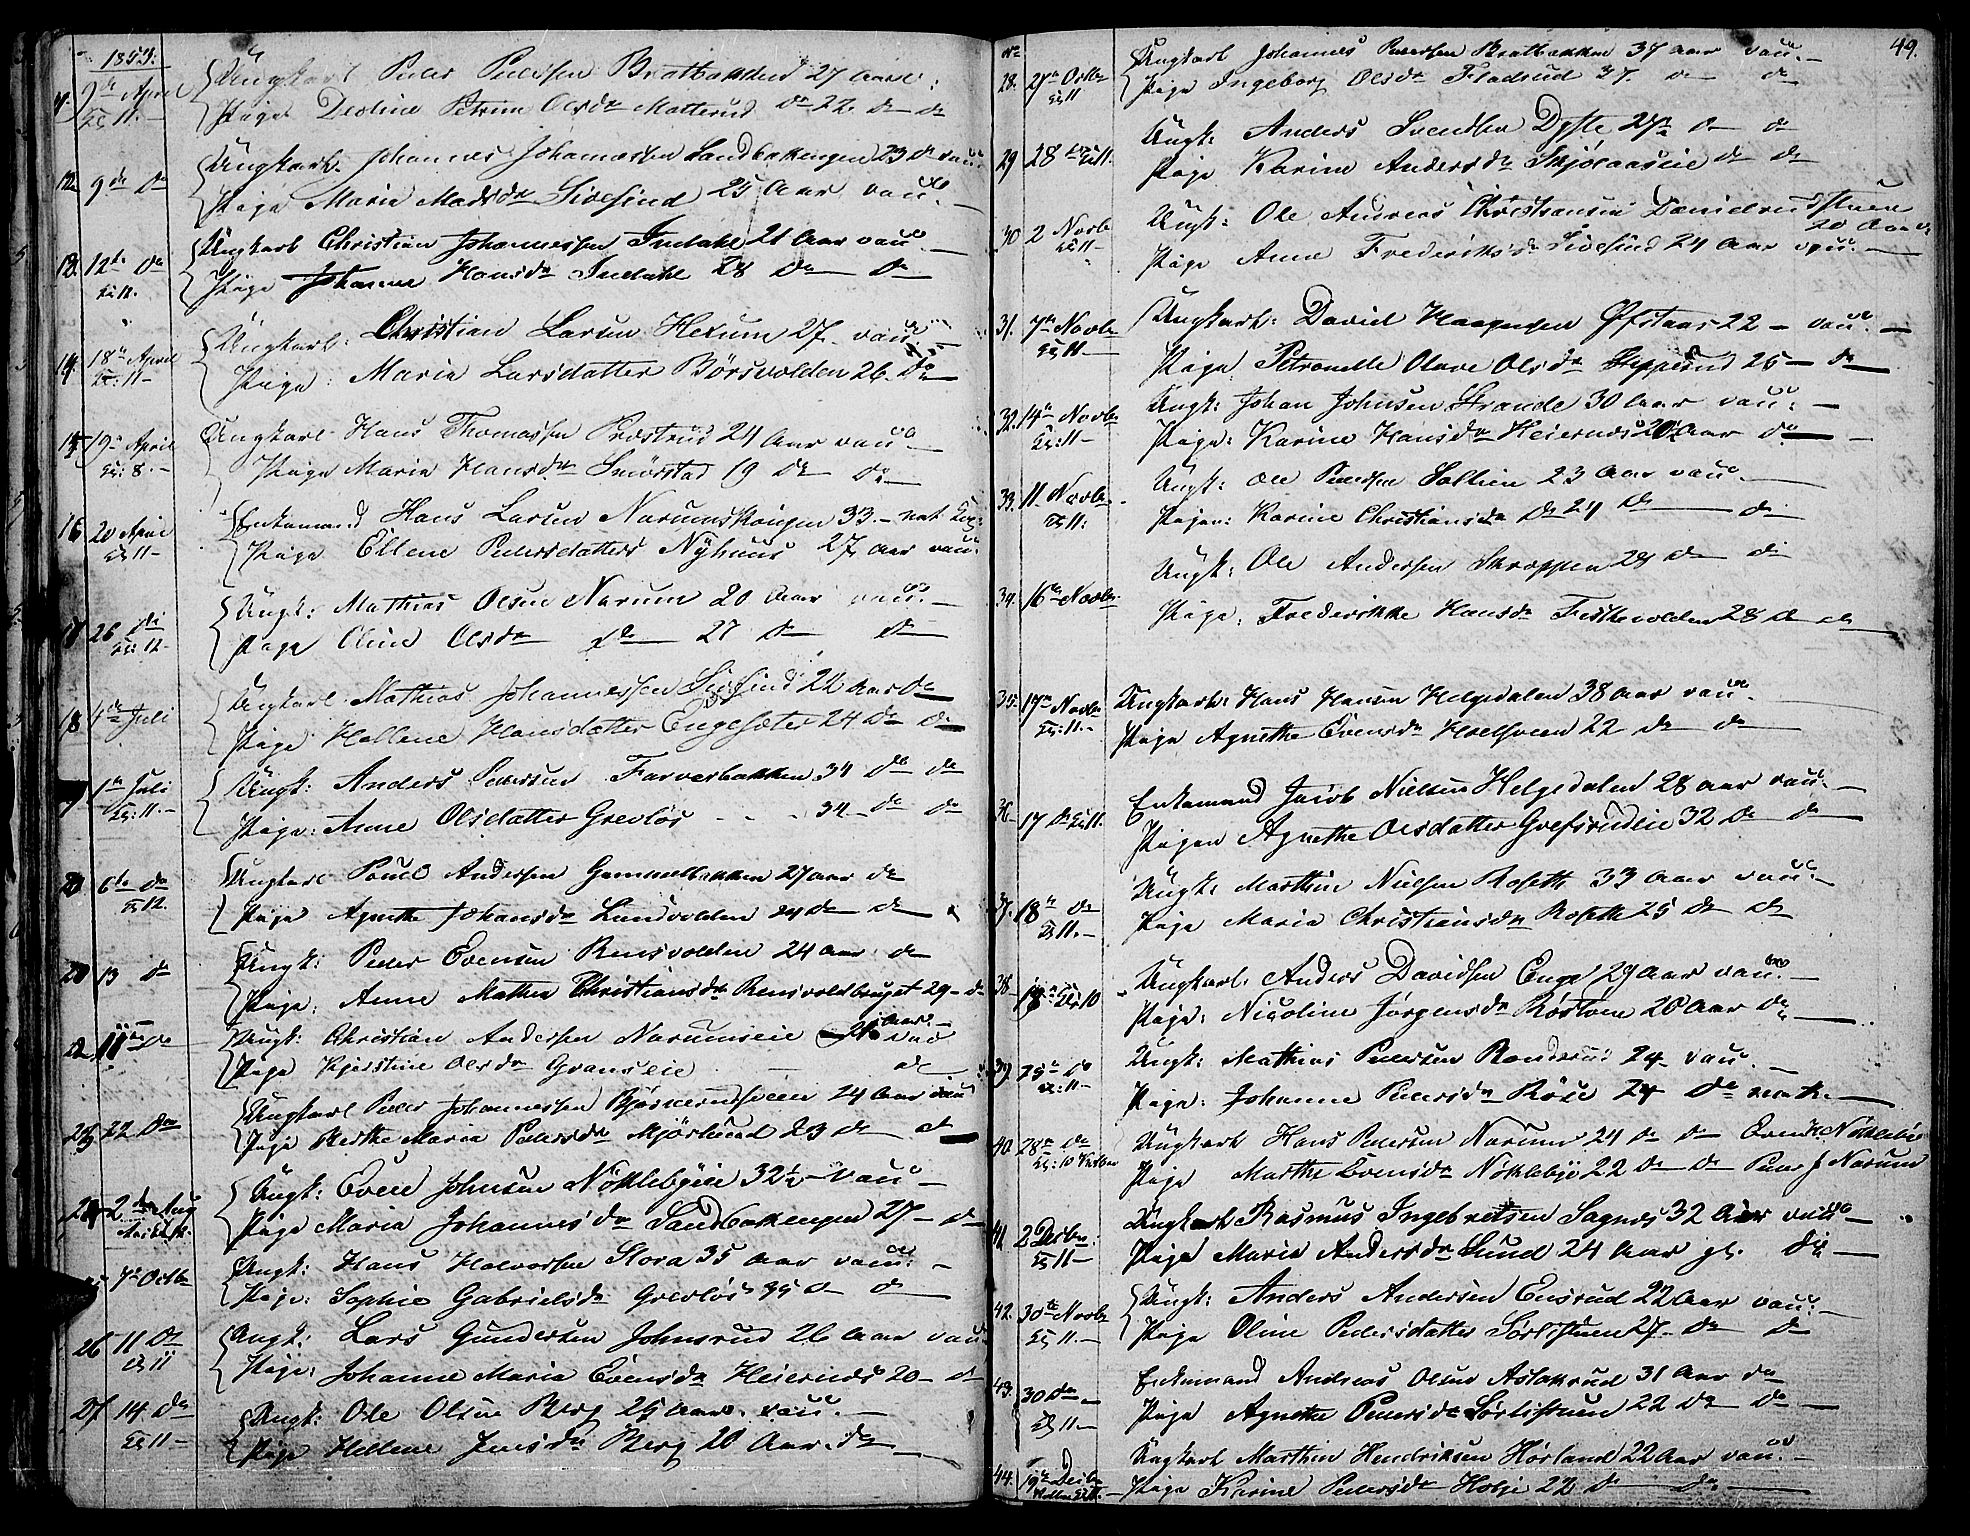 1853.
9de April Kl 11.
Ungkarl Peder Pedersen Bratbakken 27 Aar
Pige Deoline Petrine Olsdr Matterud 22 do do
12 9de do
Ungkarl Johannes Johannessen Sandbakkengen 23 do vac:
Pige Marie Madsdr Sivesind 25 Aar vac:
13. 12te do Kl 11.
Ungkarl Christian Johannessen Indahl 21 Aar vac:
Pige Johanne Hansdr Indahl 28 do do
14. 18de April Kl: 11
Ungkarl: Christian Larsen Hexum 27 vac:
Pige: Marie Larsdatter Børsvolden 26 do
15 19de April Kl: 8.
Ungkarl Hans Thomassen Præstrud 24 Aar vac
Pige Marie Hansdr Smørstad 19 do do
16 20 April Kl 11
Enkemand Hans Larsen Narumskongen 33
Pige Ellene Pedersdatter Nyhuus 27 Aar vac:
17 26 do Kl: 12.
Ungk: Mathias Olsen Narum 20 Aar vac:
Pige Oline Olsdr do 27 do do
18 Juli
Ungkarl Mathias Johannessen Sivesind 22 Aar do
Pige Hellene Hansdatter Engesæter 24 do do
1ste Juli Kl: 11.
Ungk: Anders Pedersen Farverbakken 34 do do
Pige: Anne Olsdatter Grevløs 34 do do
20 6te do Kl 12.
Ungkarl Poul Andersen Gammelbakken 27 Aar do
Pige Agnethe Johansdr Lundvolden 24 do do
13 do
Ungk: Peder Evensen Rensvolden 24 Aar do
Pige: Anne Mathea Christiansdr Rensvoldbruget 29 do
22 11 do
Ungk: Christian Andersen Narumseie Aar vac
Pige Kjerstine Olsdr Granseie do
23 22 do
Ungkarl Peder Johannessen Bjørnerudseien 24 Aar vac
Pige Berthe Marie Pedersdr Mjørlund 23 do do
24 2den Aug
Ungk: Even Johnsen Nøklebyeie 32½ vac
Pige Marie Johannesdr Sandbakkengen 27 do
7de Octbr
Ungk: Hans Halvorsen Stora 35 Aar vac:
Pige: Sophie Gabrielsdr Grevløs 35 do do
26 11 do Kl 11
Ungk: Lars Gundersen Johnsrud 26 Aar vac
Pige: Johanne Marie Evensdr Heiernes 20 do
27 14 do Kl 11
Ungk: Ole Olsen Berg 25 Aar vac:
Pige Hellene Jensdr Berg 20 Aar do
49.
28. Octbr Kl 11
Ungkarl Johannes Pedersen Bratbakken 37 Aar vac:
Pige Ingeborg Olsdr Fladsrud 37 do do
29 28 Kl 11.
Ungk: Anders Svendsen Dyste 27 do do
Pige Karine Andersdr Skjølaaseie do do
30 2 Novbr Kl 11
Ungk: Ole Andreas Christiansen Danielrudstuen 20 Aar
Pige Anne Frederiksdr Sivesind 24 Aar vac:
31. 7de Novbr Kl 11
Ungkarl: David Haagensen Øfstaas 22 vac:
Pige: Petronelle Olave Olsdr 25 do
32. 14de Novbr Kl: 11
Ungk: Johan Johnsen Strande 30 Aar vac:
Pige: Karine Hansdr Heiernes 20 Aar do
33. 11 Novbr Kl 11.
Ungk: Ole Pedersen Sollien 23 Aar vac:
Pigen: Karine Christiansdr do 24 do do
34. 16de Novbr
Ungk: Ole Andersen Skroppen 28 do do
Pige: Frederikke Hansdr Fiskevolden 28 do do
35. 17de Novbr Kl: 11.
Ungkarl: Hans Hansen Helgedalen 38 Aar vac:
Pige Agnethe Evensdr Hoelsveen 22 do do
36 17 do Kl 11.
Enkemand Jacob Nielsen Helgedalen 28 Aar vac:
Pigen Agnethe Olsdatter Grefsrudeie 32 do do
37. 18de do Kl 11.
Ungk: Marthin Nielsen Roseth 33 Aar vac:
Pige Marie Christiansdr Roseth 25 do do
38 18de Kl: 10
Ungkarl: Anders Davidsen Enge 29 Aar vac:
Pige: Nicoline Jørgensdr Røstøen 20 Aar do
39 25de do Kl: 11
Ungk: Mathias Pedersen Randerud 24 vac:
Pige: Johanne Pedersdr Røise 24 do
40. 28de do Kl: 10
Ungkarl Hans Pedersen Narum 24 do do Even Nøklebye
Pige Marthe Evensdr Nøklebye 22 do do Peder J Narum
41 2 Decbr: Kl 11
Ungkarl Rasmus Ingebretsen Sagnes 32 Aar vac:
Pige Marie Andersdr Lund 24 Aar gl. do
42. 30te Novbr Kl 11.
Ungk: Anders Andersen Ensrud 22 Aar vac:
Pige Oline Pedersdatter Sørlistuen 27 do do
43. 30 do Kl 11
Enkemand Andreas Olsen Aslaksrud 31 Aar do
Pige Agnethe Pedersdr Sørlistuen 22 do do
44. 19de Decbr
Ungkarl Marthin Hendriksen Hørland 22 Aar vac:
Pige Karine Pedersdr Hobje 22 do do